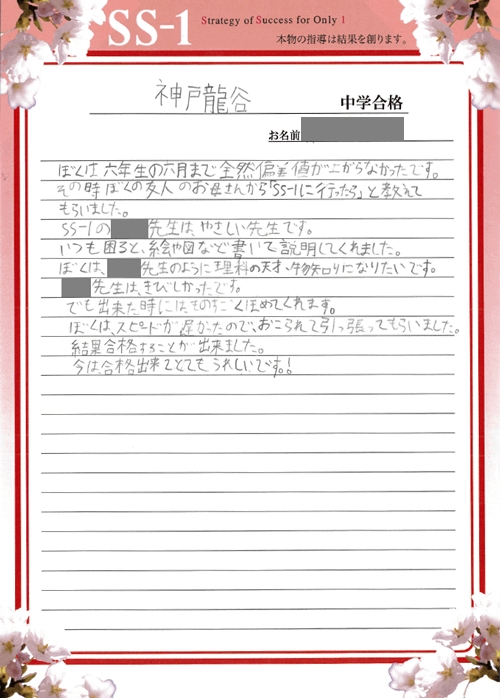 SS-1
Strategy of Success for Only 1
本物の指導は結果を創ります。
神戸龍谷 中学合格
お名前
ぼくは六年生の六月まで全然偏差値が上がらなかったです。
その時ぼくの友人のお母さんから「SS-1に行ったら」と教えて
もらいました。
SS-1の 先生は、やさしい先生です。
いつも困ると、絵や図など書いて説明してくれました。
ぼくは、 先生のように理科の天才、物知りになりたいです。
先生は、きびしかったです。
でも出来た時にはものすごくほめてくれます。
ぼくは、スピードが遅かったので、おこられて引っ張ってもらいました。
結果合格することが出来ました。
今は、合格出来てとてもうれしいです。!